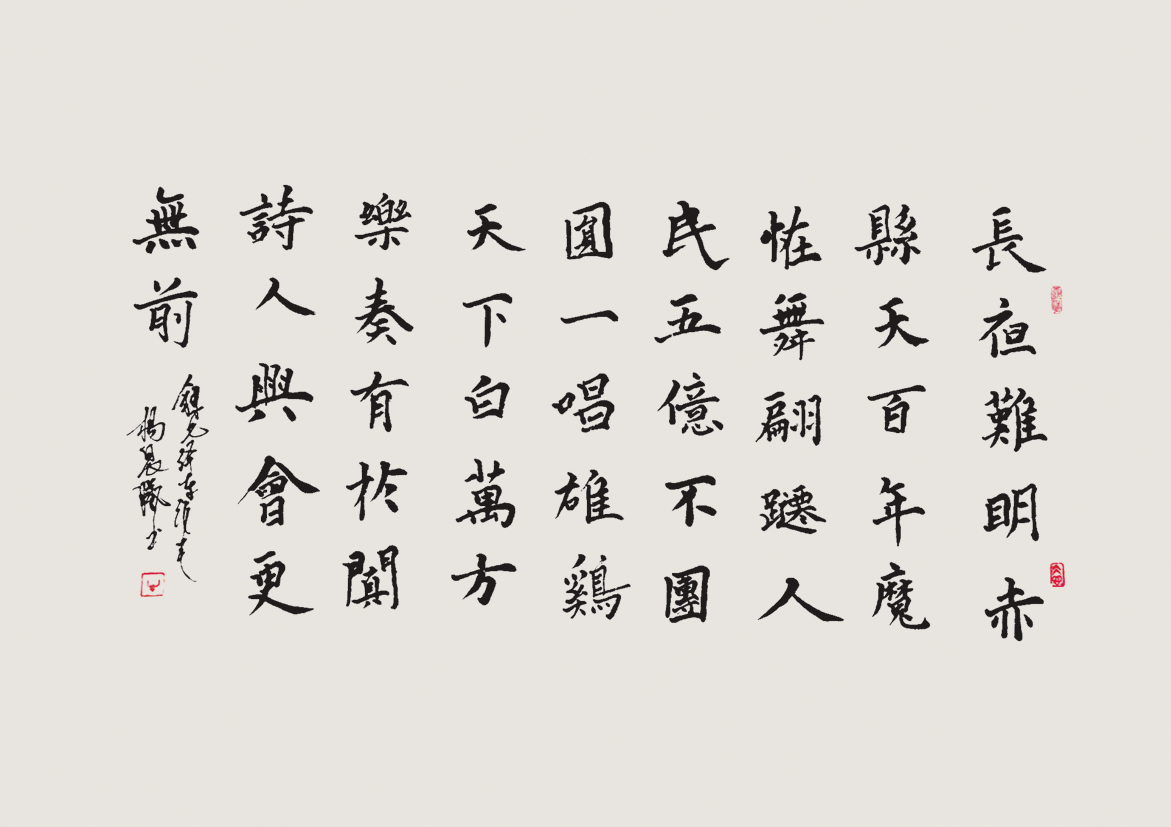 長夜難明赤
縣天百年魔
恠舞翩躚人
民五億不團
圓一唱雄鷄
天下白萬方
樂奏有於闐
詩人興會更
無前